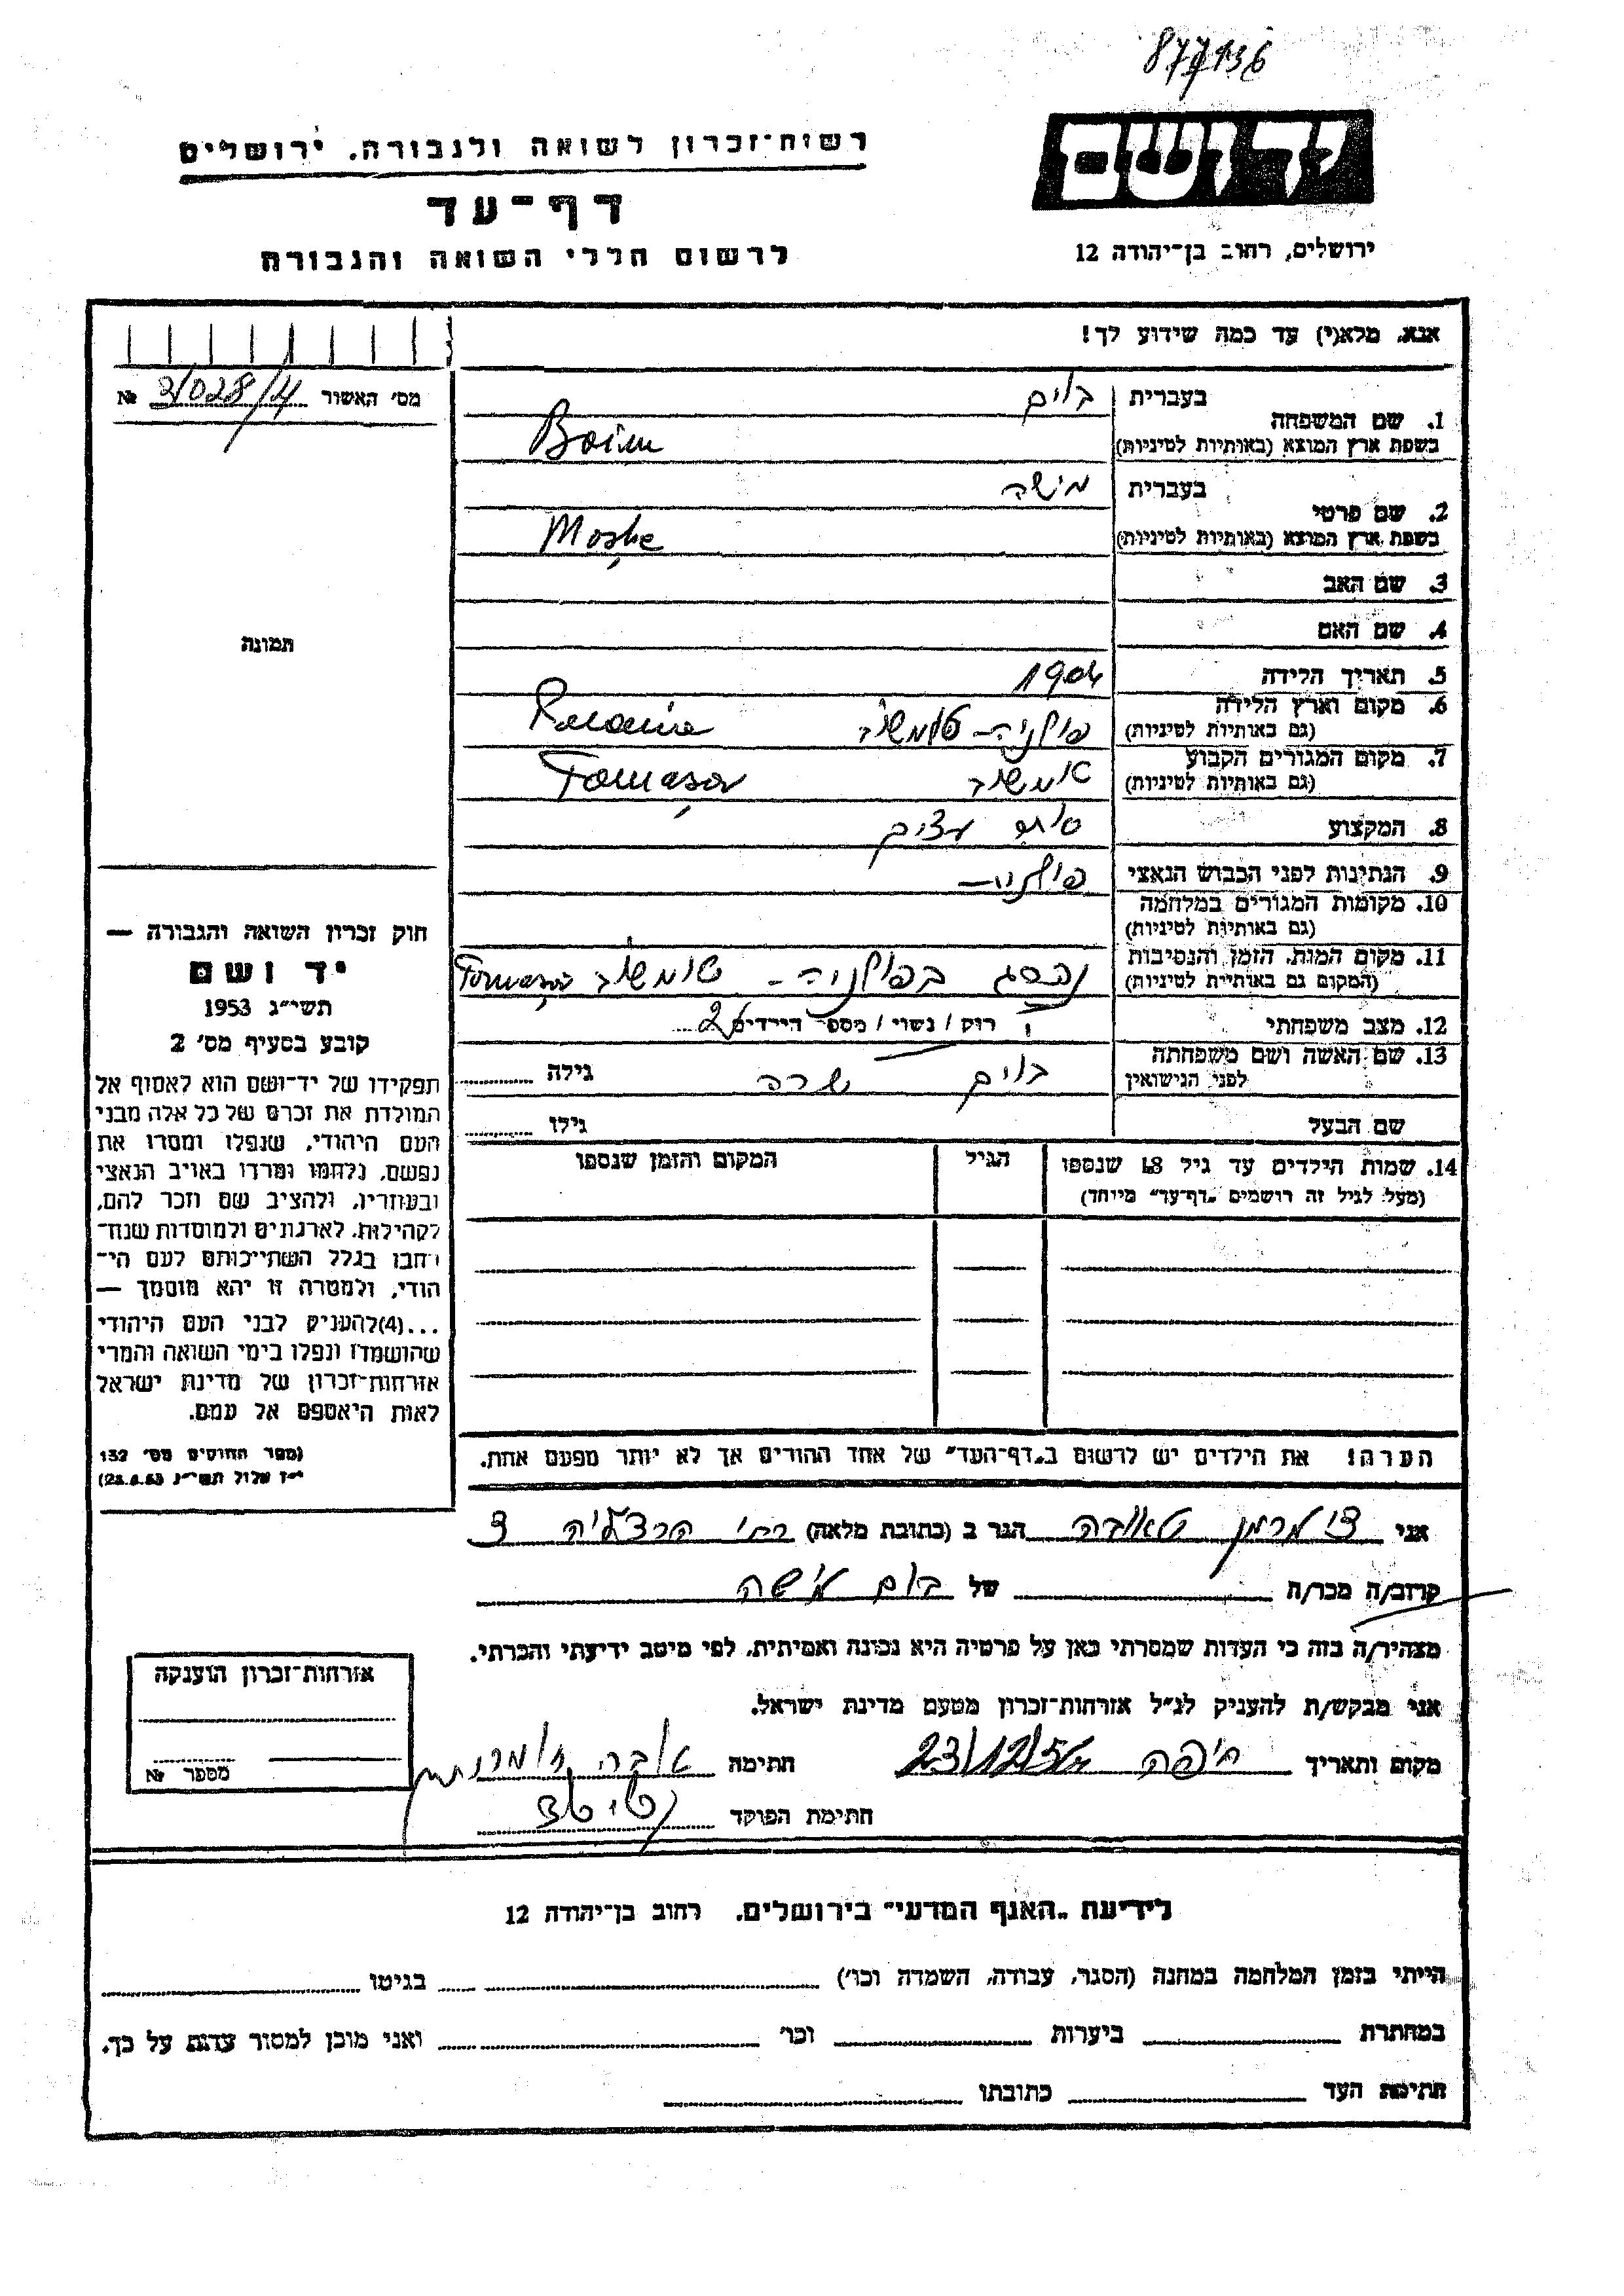 877136
יד ושם
רשות־זכרון לשואה ולגבורה, ירושלים
דף־עד
לרשום חללי השואה והגבורה
ירושלים, רחוב בן־יהודה 12
אנא, מלא(י) עד כמה שידוע לך!
מס׳ האשור № 
1. שם המשפחה בעברית בוים
בשפת ארץ המוצא (באותיות לטיניות) Boim
2. שם פרטי בעברית מישה
בשפת ארץ המוצא (באותיות לטיניות) Moshe
3. שם האב
4. שם האם
תמונה
5. תאריך הלידה 1904
6. מקום וארץ הלידה
(גם באותיות לטיניות) פולניה – טומשוב
7. מקום המגורים הקבוע
(גם באותיות לטיניות) טומשוב Tomaşov
8. המקצוע עצים
9. הנתינות לפני הכבוש הנאצי פולניה –
10. מקומות המגורים במלחמה
(גם באותיות לטיניות)
11. מקום המות, הזמן והנסיבות
(המקום גם באותיות לטיניות) נהרג בפולניה – טומשוב Tomaşov
12. מצב משפחתי רווק / נשוי / מספר הילדים 2
13. שם האשה ושם משפחתה
לפני הנישואין בוים שרה גילה
שם הבעל גילו
14. שמות הילדים עד גיל 18 שנספו הגיל המקום והזמן שנספו
(מעל לגיל זה רושמים „דף־עד״ מיוחד)
חוק זכרון השואה והגבורה —
יד ושם
תשי״ג 1953
קובע בסעיף מס׳ 2
תפקידו של יד־ושם הוא לאסוף אל
המולדת את זכרם של כל אלה מבני
העם היהודי, שנפלו ומסרו את
נפשם, נלחמו ומרדו באויב הנאצי
ובעוזריו, ולהציב שם וזכר להם,
לקהילות, לארגונים ולמוסדות שנח־
רבו בגלל השתייכותם לעם הי־
הודי, ולמטרה זו יהא מוסמך —
...(4)להעניק לבני העם היהודי
שהושמדו ונפלו בימי השואה והמרי
אזרחות־זכרון של מדינת ישראל
לאות היאספם אל עמם.
(ספר החוקים מס׳ 132
י״ז אלול תשי״ג 28.8.53)
הערה! את הילדים יש לרשום ב„דף־העד״ של אחד ההורים אך לא יותר מפעם אחת.
אני צימרמן טאובה הגר ב (כתובת מלאה) רח׳ הרצליה 3
קרוב/ה מכר/ה של בוים מישה
מצהיר/ה בזה כי העדות שמסרתי כאן על פרטיה היא נכונה ואמיתית, לפי מיטב ידיעתי והכרתי.
אני מבקש/ת להעניק לנ״ל אזרחות־זכרון מטעם מדינת ישראל.
מקום ותאריך חיפה 23/12/56 חתימה
חתימת הפוקד
אזרחות־זכרון הוענקה
מספר №
לידיעת „האגף המדעי״ בירושלים, רחוב בן־יהודה 12
הייתי בזמן המלחמה במחנה (הסגר, עבודה, השמדה וכו׳) בגיטו
במחתרת ביערות וכו׳ ואני מוכן למסור עדות על כך.
חתימת העד כתובתו